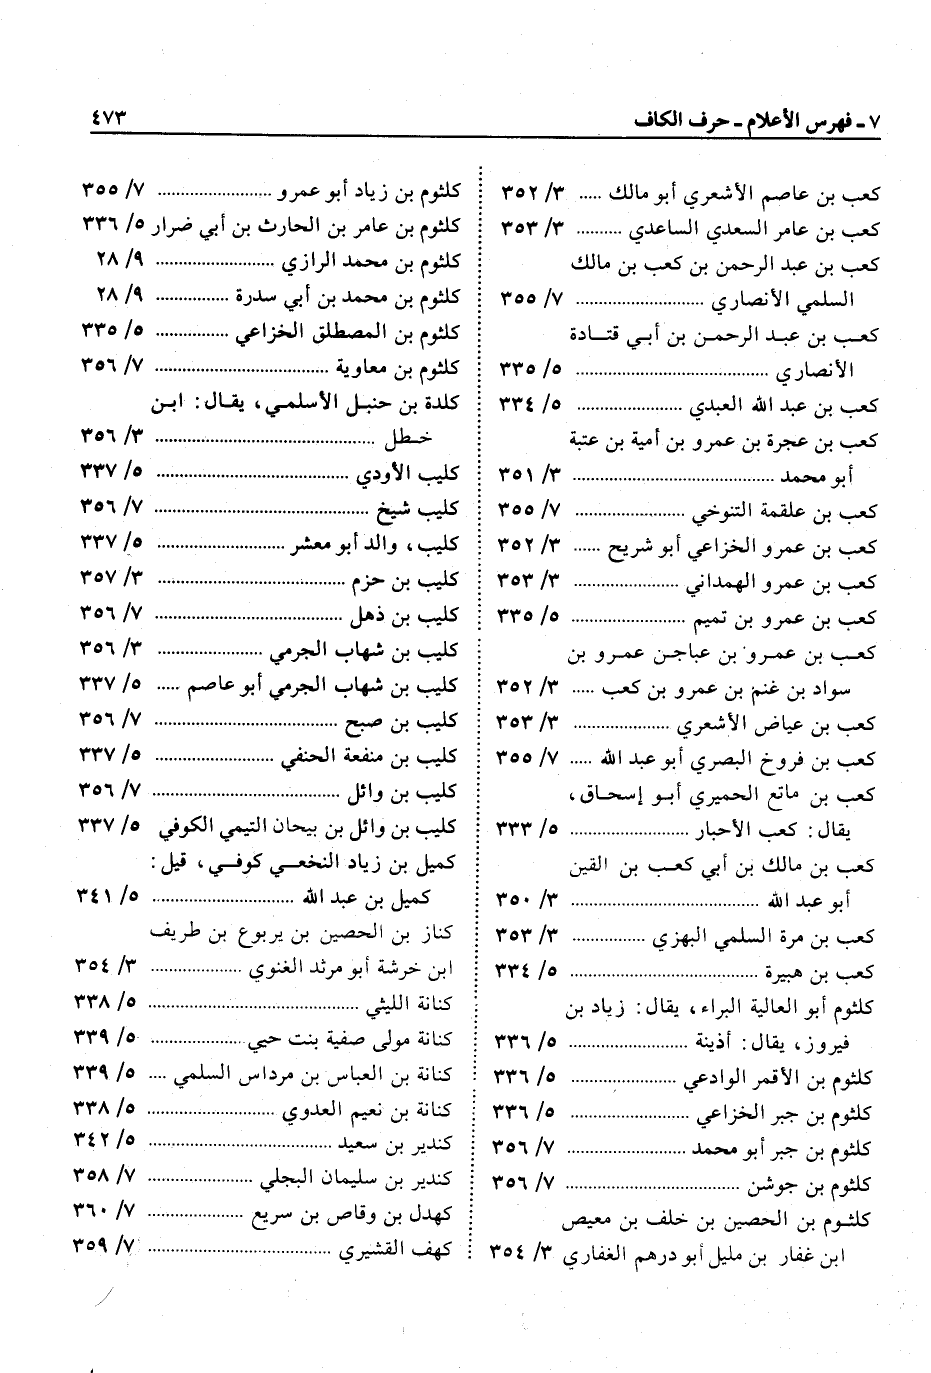 ٧ - فهرس الأعلام - حرف الكاف ٤٧٣
كعب بن عاصم الأشعري أبو مالك ..... ٣/ ٣٥٢
كعب بن عامر السعدي الساعدي .......... ٣/ ٣٥٣
كعب بن عبد الرحمن بن كعب بن مالك
السلمي الأنصاري ............................ ٧/ ٣٥٥
كعب بن عبد الرحمن بن أبي قتادة
الأنصاري .......................................... ٥/ ٣٣٥
كعب بن عبد الله العبدي ....................... ٥/ ٣٣٤
كعب بن عجرة بن عمرو بن أمية بن عتبة
أبو محمد ............................................ ٣/ ٣٥١
كعب بن علقمة التنوخي ........................ ٧/ ٣٥٥
كعب بن عمرو الخزاعي أبو شريح ...... ٣/ ٣٥٢
كعب بن عمرو الهمداني ....................... ٣/ ٣٥٣
كعب بن عمرو بن تميم ......................... ٥/ ٣٣٥
كعب بن عمرو بن عباجن عمرو بن
سواد بن غنم بن عمرو بن كعب ..... ٣/ ٣٥٢
كعب بن عياض الأشعري ..................... ٣/ ٣٥٣
كعب بن فروخ البصري أبو عبد الله ..... ٧/ ٣٥٥
كعب بن ماتع الحميري أبو إسحاق،
يقال: كعب الأحبار .......................... ٥/ ٣٣٣
كعب بن مالك بن أبي كعب بن القين
أبو عبد الله ......................................... ٣/ ٣٥٠
كعب بن مرة السلمي البهزي ................ ٣/ ٣٥٣
كعب بن هبيرة ......................................... ٥/ ٣٣٤
كلثوم أبو العالية البراء، يقال: زياد بن
فيروز، يقال: أذينة .......................... ٥/ ٣٣٦
كلثوم بن الأقمر الوادعي ....................... ٥/ ٣٣٦
كلثوم بن جبر الخزاعي .......................... ٥/ ٣٣٦
كلثوم بن جبر أبو محمد .......................... ٧/ ٣٥٦
كلثوم بن جوشن ...................................... ٧/ ٣٥٦
كلثوم بن الحصين بن خلف بن معيص
ابن غفار بن مليل أبو درهم الغفاري ٣/ ٣٥٤
كلثوم بن زياد أبو عمرو ......................... ٧/ ٣٥٥
كلثوم بن عامر بن الحارث بن أبي ضرار ٥/ ٣٣٦
كلثوم بن محمد الرازي .......................... ٩/ ٢٨
كلثوم بن محمد بن أبي سدرة ................ ٩/ ٢٨
كلثوم بن المصطلق الخزاعي ................ ٥/ ٣٣٥
كلثوم بن معاوية ...................................... ٧/ ٣٥٦
كلدة بن حنبل الأسلمي، يقال: ابن
خطل ................................................ ٣/ ٣٥٦
كليب الأودي .......................................... ٥/ ٣٣٧
كليب شيخ ............................................... ٧/ ٣٥٦
كليب، والد أبو معشر ............................ ٥/ ٣٣٧
كليب بن حزم .......................................... ٣/ ٣٥٧
كليب بن ذهل .......................................... ٧/ ٣٥٦
كليب بن شهاب الجرمي ....................... ٣/ ٣٥٦
كليب بن شهاب الجرمي أبو عاصم ..... ٥/ ٣٣٧
كليب بن صبح ........................................ ٧/ ٣٥٦
كليب بن منفعة الحنفي .......................... ٥/ ٣٣٧
كليب بن وائل .......................................... ٧/ ٣٥٦
كليب بن وائل بن بيحان التيمي الكوفي ٥/ ٣٣٧
كميل بن زياد النخعي كوفي، قيل:
كميل بن عبد الله ............................... ٥/ ٣٤١
كناز بن الحصين بن يربوع بن طريف
ابن خرشة أبو مرثد الغنوي .............. ٣/ ٣٥٤
كنانة الليثي .............................................. ٥/ ٣٣٨
كنانة مولى صفية بنت حيي .................... ٥/ ٣٣٩
كنانة بن العباس بن مرداس السلمي .... ٥/ ٣٣٩
كنانة بن نعيم العدوي ............................ ٥/ ٣٣٨
كندير بن سعيد ........................................ ٥/ ٣٤٢
كندير بن سليمان البجلي ....................... ٧/ ٣٥٨
كهدل بن وقاص بن سريع ..................... ٧/ ٣٦٠
كهف القشيري ........................................ ٧/ ٣٥٩